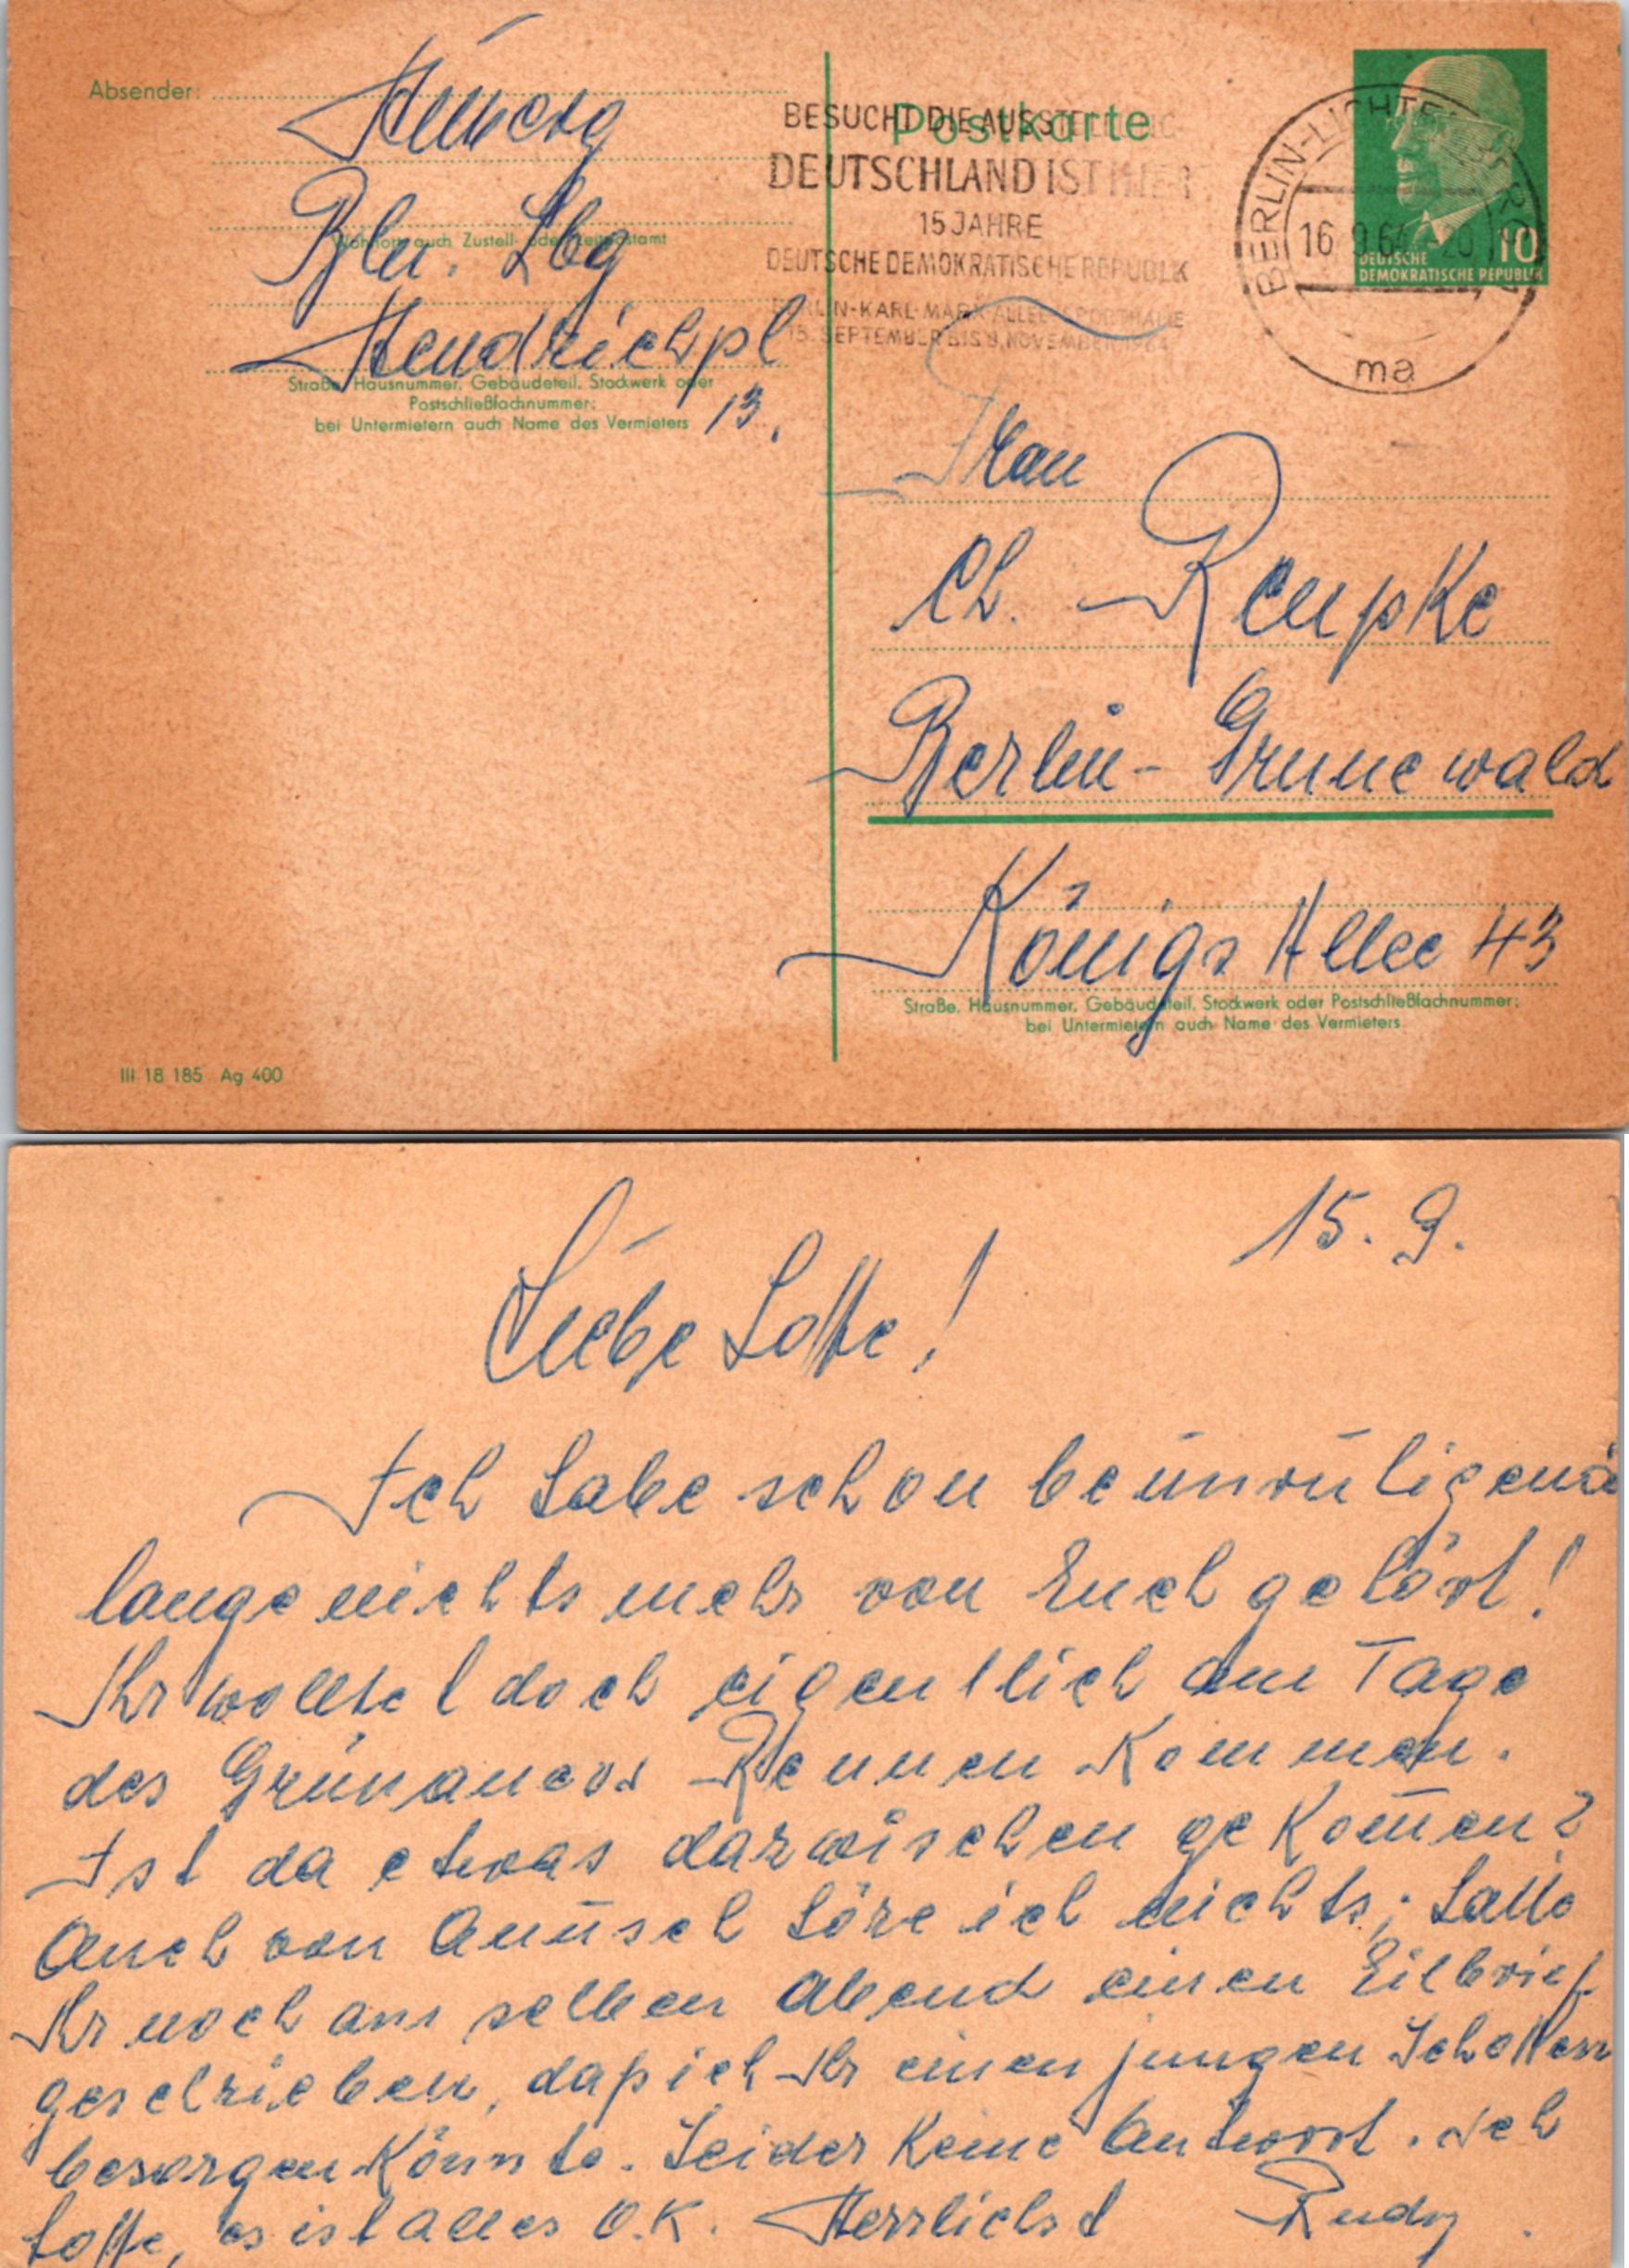 Absender:
Bln. Lbg
Wohnort, auch Zustell- oder Leitpostamt
Hendrichpl
13.
Straße, Hausnummer, Gebäudeteil, Stockwerk oder
Postschließfachnummer;
bei Untermietern auch Name des Vermieters
III 18 185 Ag 400
Postkarte
BESUCHT DIE AUSSTELLUNG
DEUTSCHLAND IST HIER
15 JAHRE
DEUTSCHE DEMOKRATISCHE REPUBLIK
BERLIN-KARL-MARX-ALLEE SPORTHALLE
15. SEPTEMBER BIS 8. NOVEMBER 1964
BERLIN-LICHTENBERG
16.9.64-20
ma
10
DEUTSCHE
DEMOKRATISCHE REPUBLIK
Frau
Ch. Rempke
Berlin-Grunewald
Königs Allee 43
Straße, Hausnummer, Gebäudeteil, Stockwerk oder Postschließfachnummer;
bei Untermietern auch Name des Vermieters
15. 9.
Liebe Lotte!
Ich habe schon
lange nichts mehr von Euch gehört!
Ihr wolltet doch eigentlich am Tage
des Grünauer Rennen kommen.
Ist da etwas dazwischen gekom̅en?
Auch von höre ich nichts; hatte
Ihr noch am selben Abend einen Eilbrief
geschrieben, daß ich Ihr einen jungen Schotten
besorgen könnte. Leider keine Antwort. Ich
hoffe, es ist alles O.K. Herzlichst Rudy.